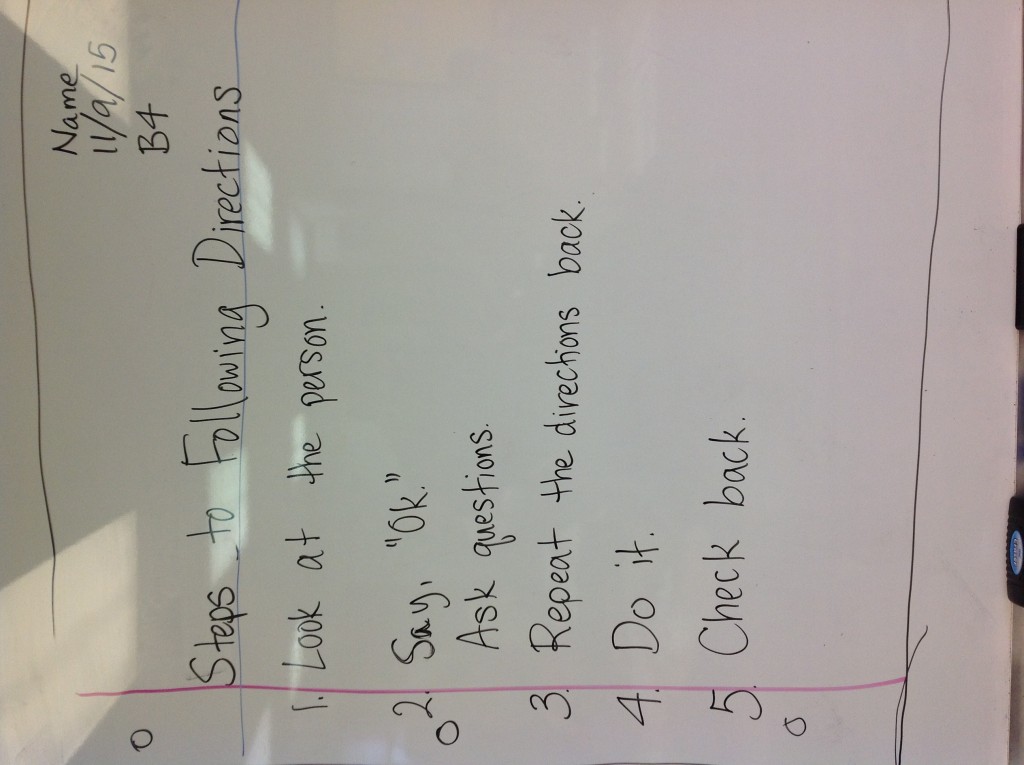 Name
11/9/15
B4
Steps to Following Directions
1. Look at the person.
2. Say, "Ok."
Ask questions.
3. Repeat the directions back.
4. Do it.
5. Check back.